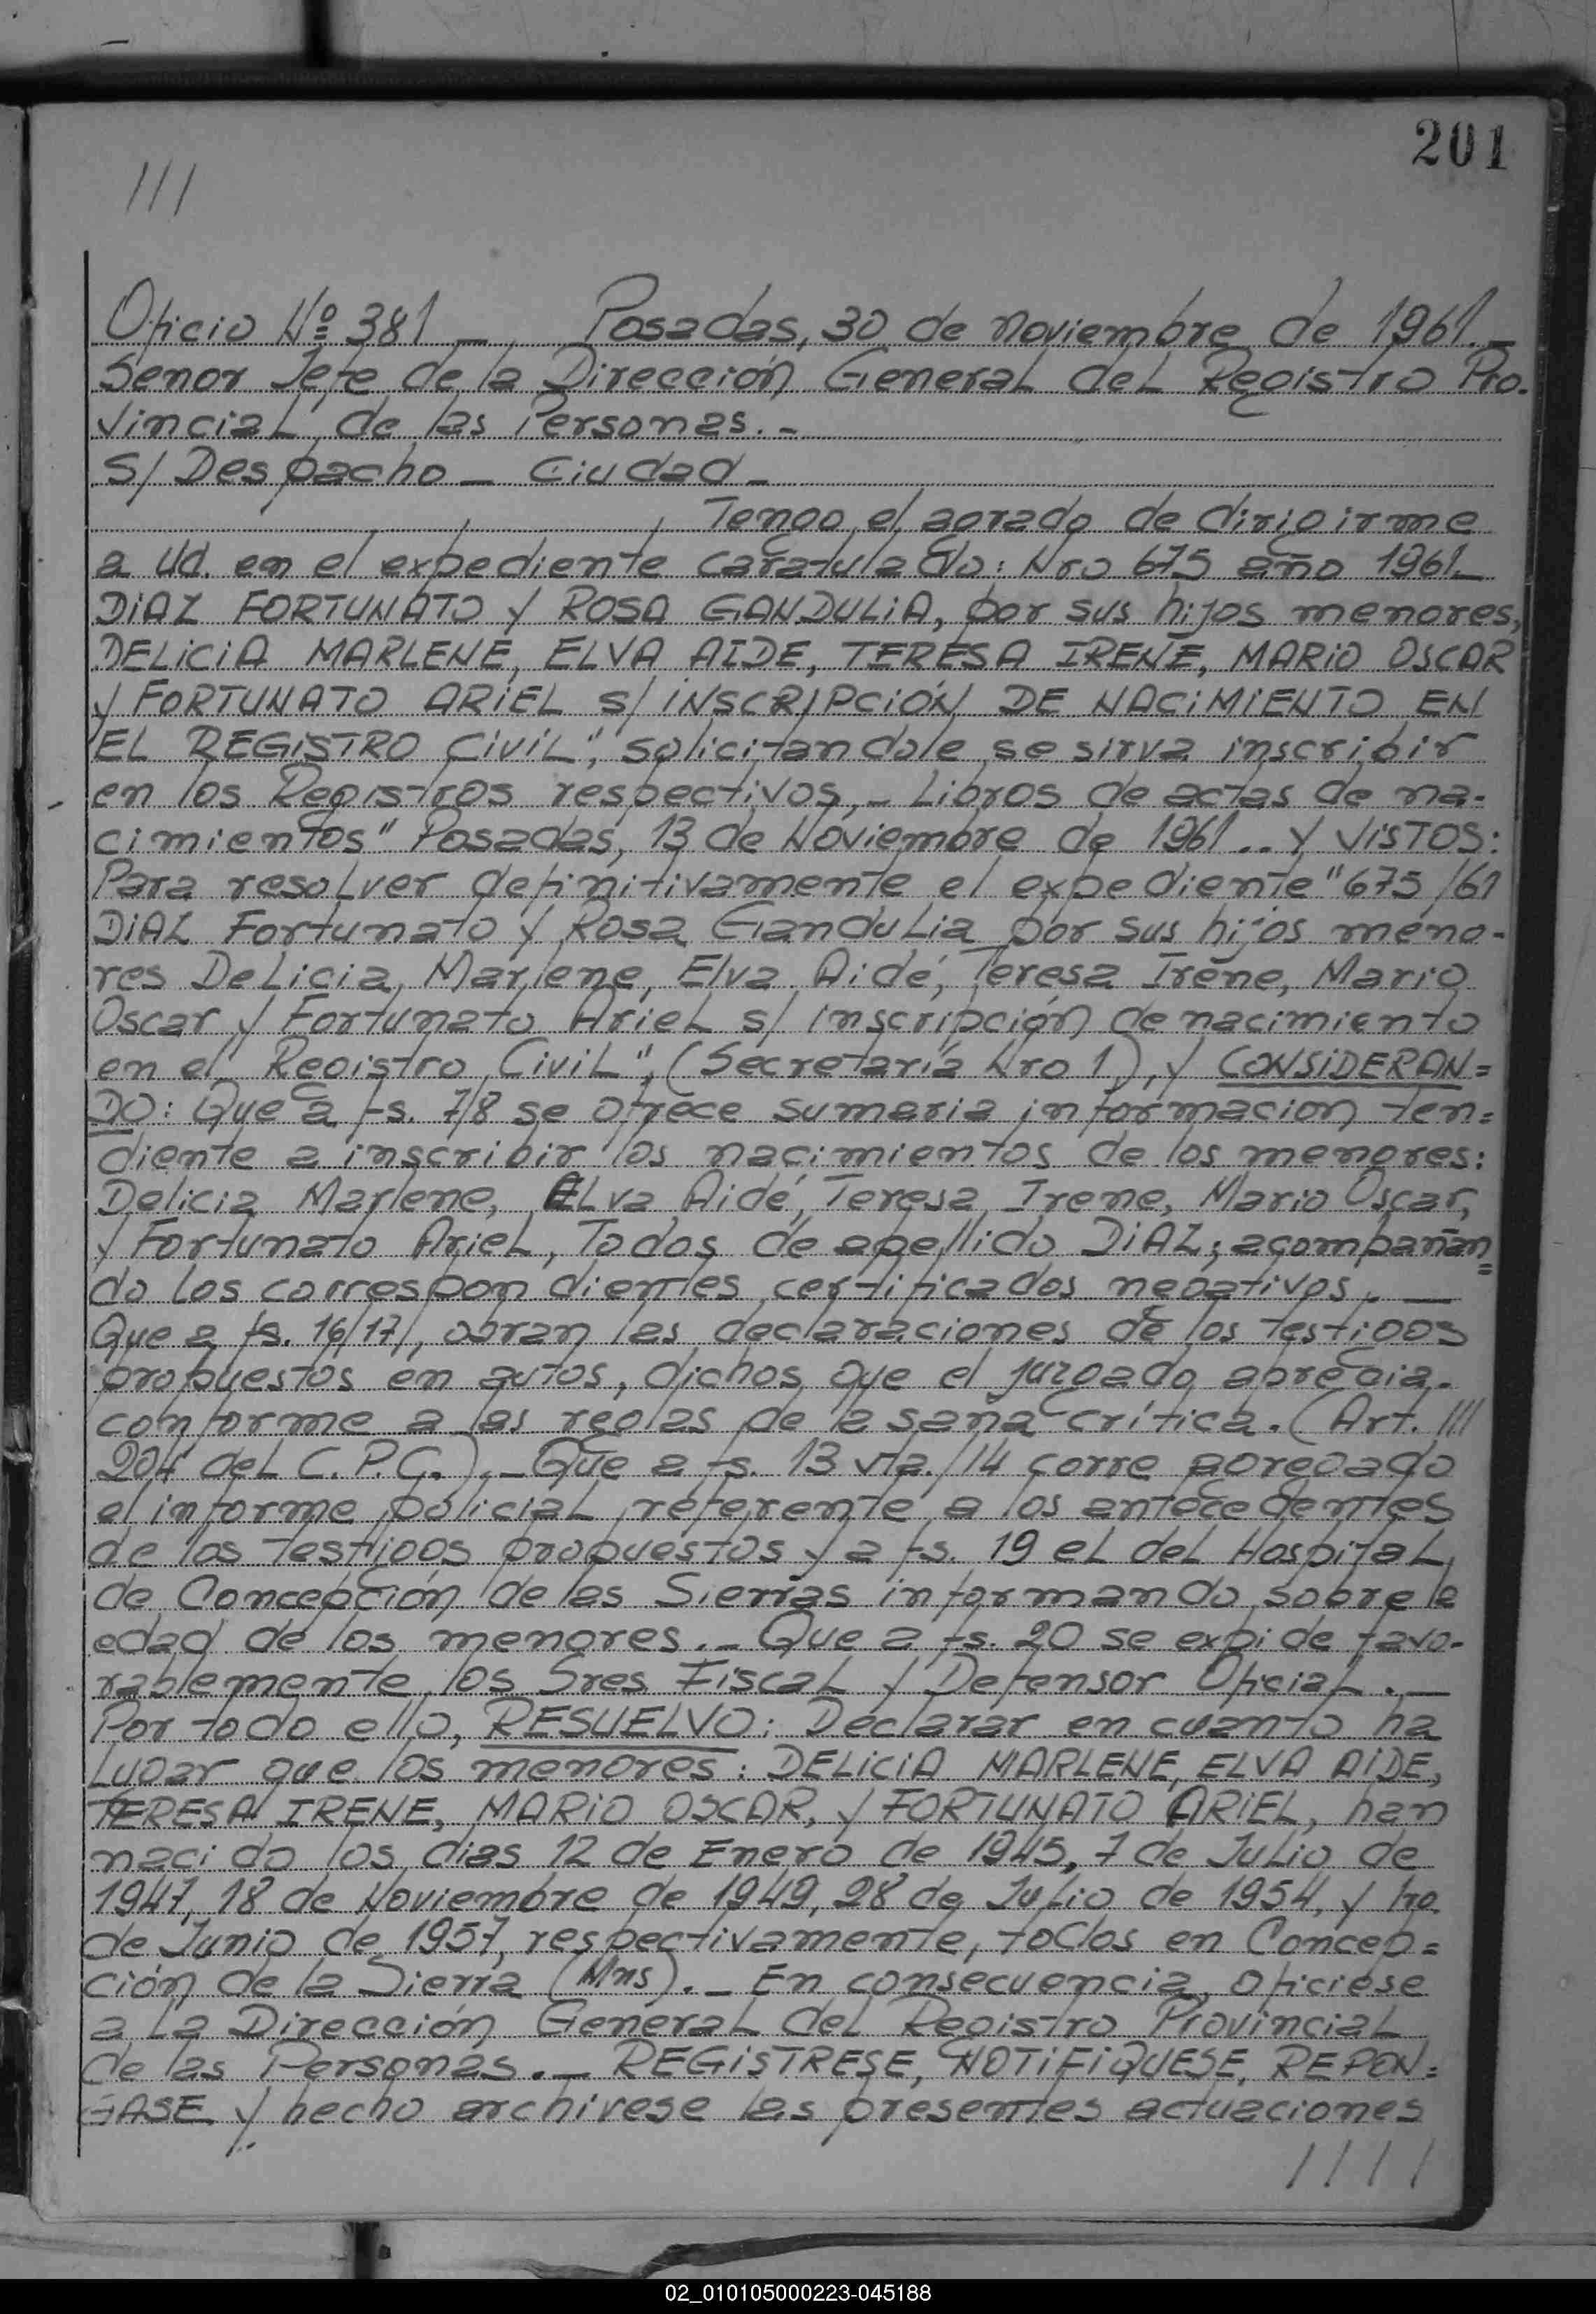 201
///
Oficio Nº 381 _ Posadas, 30 de noviembre de 1961._
Señor Jefe de la Dirección General del Registro Pro-
vincial de las Personas._
S/ Despacho _ Ciudad _
Tengo el agrado de dirigirme
a Ud. en el expediente caratulado: Nro 675 año 1961_
DIAZ FORTUNATO y ROSA GANDULIA, por sus hijos menores,
DELICIA MARLENE, ELVA AIDE, TERESA IRENE, MARIO OSCAR
y FORTUNATO ARIEL S/ INSCRIPCIÓN DE NACIMIENTO EN
EL REGISTRO CIVIL", solicitandole se sirva inscribir
en los Registros respectivos,_ Libros de actas de na-
cimientos" Posadas, 13 de Noviembre de 1961.. Y VISTOS:
Para resolver definitivamente el expediente "675/61
DIAZ Fortunato y Rosa Gandulia por sus hijos meno-
res Delicia, Marlene, Elva Aidé, Teresa Irene, Mario
Oscar y Fortunato Ariel s/ inscripción de nacimiento
en el Registro Civil", (Secretaría Nro 1), y CONSIDERAN=
DO: Que a fs. 7/8 se ofrece sumaria informacion ten=
diente a inscribir los nacimientos de los menores:
Delicia Marlene, Elva Aidé, Teresa Irene, Mario Oscar,
y Fortunato Ariel, Todos de apellido DIAZ; acompañan=
do los correspondientes certificados negativos. __
Que a fs. 16/17/, obran las declaraciones de los testigos
propuestos en autos, dichos que el juzgado aprecia-
conforme a las reglas de la sana crítica. (Art. ///
204 del C.P.C.)._ Que a fs. 13 vta./14 corre agregado
el informe policial referente a los antecedentes
de los testigos propuestos y a fs. 19 el del Hospital
de Concepción de las Sierras informando sobre la
edad de los menores._ Que a fs. 20 se expide favo-
rablemente los Sres Fiscal y Defensor Oficial._
Por todo ello, RESUELVO: Declarar en cuanto ha
Lugar que los menores: DELICIA MARLENE, ELVA AIDE,
TERESA IRENE, MARIO OSCAR, y FORTUNATO ARIEL, han
nacido los dias 12 de Enero de 1945, 7 de Julio de
1947, 18 de Noviembre de 1949, 28 de Julio de 1954, y 1ro.
de Junio de 1957, respectivamente, todos en Concep=
ción de la Sierra (Mns)._ En consecuencia, oficiese
a la Dirección General del Registro Provincial
de las Personas._ REGISTRESE, NOTIFIQUESE, REPON=
GASE y hecho archivese las presentes actuaciones
////
02_010105000223-045188